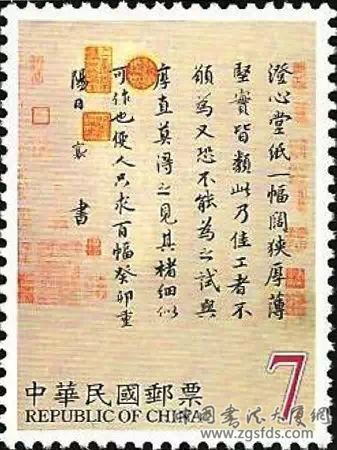 澄心堂紙一幅闊狹厚薄
堅實皆類此乃佳工者不
願為又恐不能為之試與
厚直莫得之見其楮細似
可作也便人只求百幅癸卯重
陽日 襄 書
7
中華民國郵票
REPUBLIC OF CHINA
中国书法大厦网
www.zgsfds.com